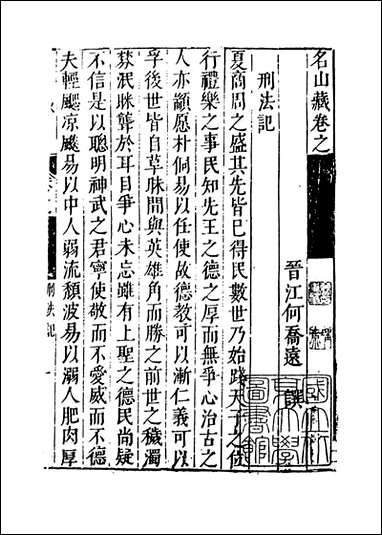 名山藏卷之
晉江何喬遠 譔
刑法記
夏商周之盛其先皆已得民數世乃始踐天子之位
行禮樂之事民知先王之德之厚而無爭心治古之
人亦顓愿朴侗易以任使故德教可以漸仁義可以
孚後世皆自草昧間與英雄角而勝之前世之穢濁
棼泯眯聾於耳目爭心未忘雖有上聖之德民尚疑
不信是以聰明神武之君寧使敬而不愛威而不德
夫輕飔凉飈易以中人弱流頹波易以溺人肥肉厚
刑法記
一
圖書館